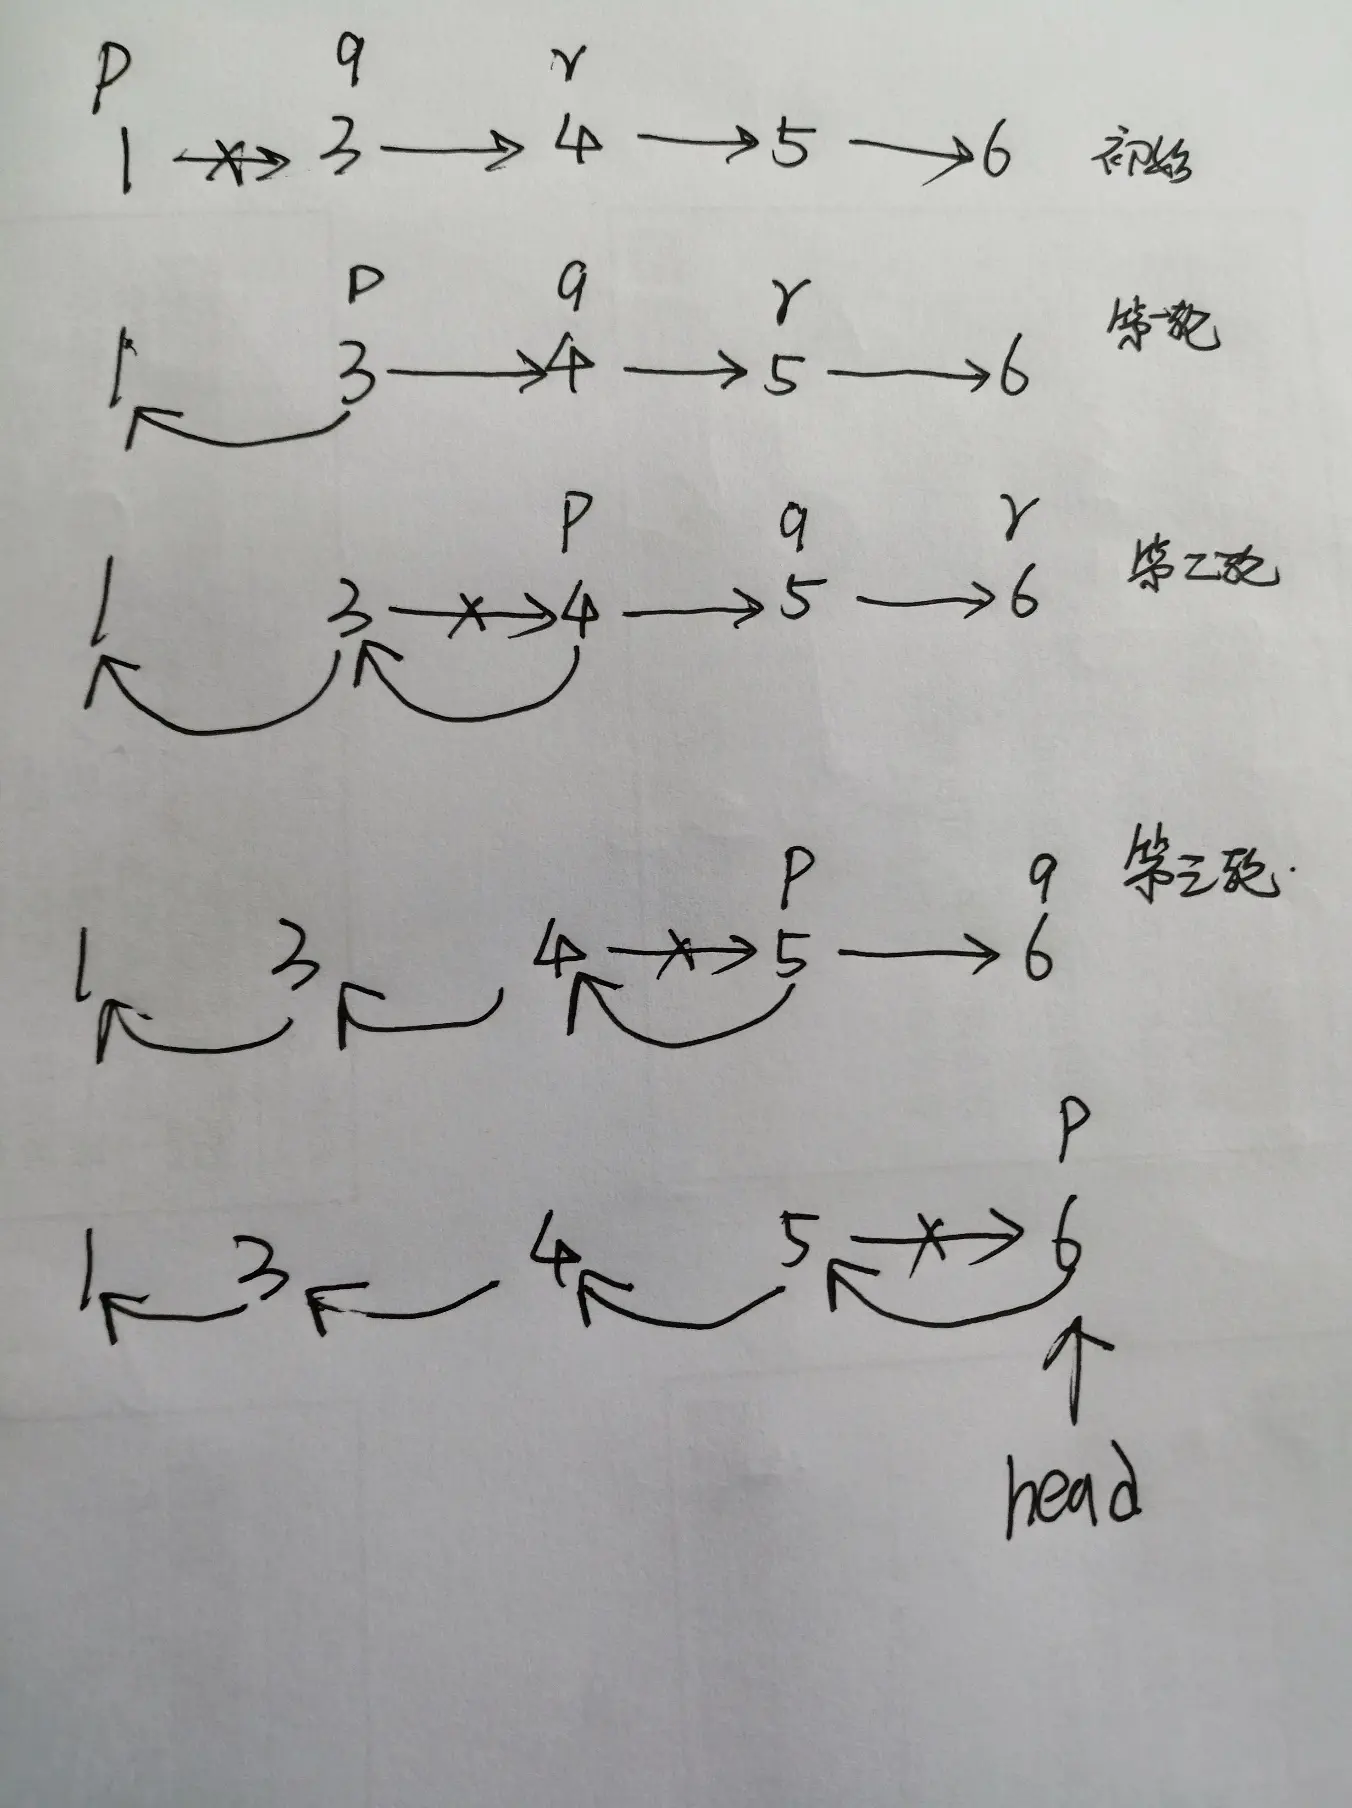 p q r
1 → 3 → 4 → 5 → 6 初始
p q r
1 3 → 4 → 5 → 6 第一轮
p q r
1 3 → 4 → 5 → 6 第二轮
p q
1 3 4 → 5 → 6 第三轮.
p
1 3 4 5 → 6
head